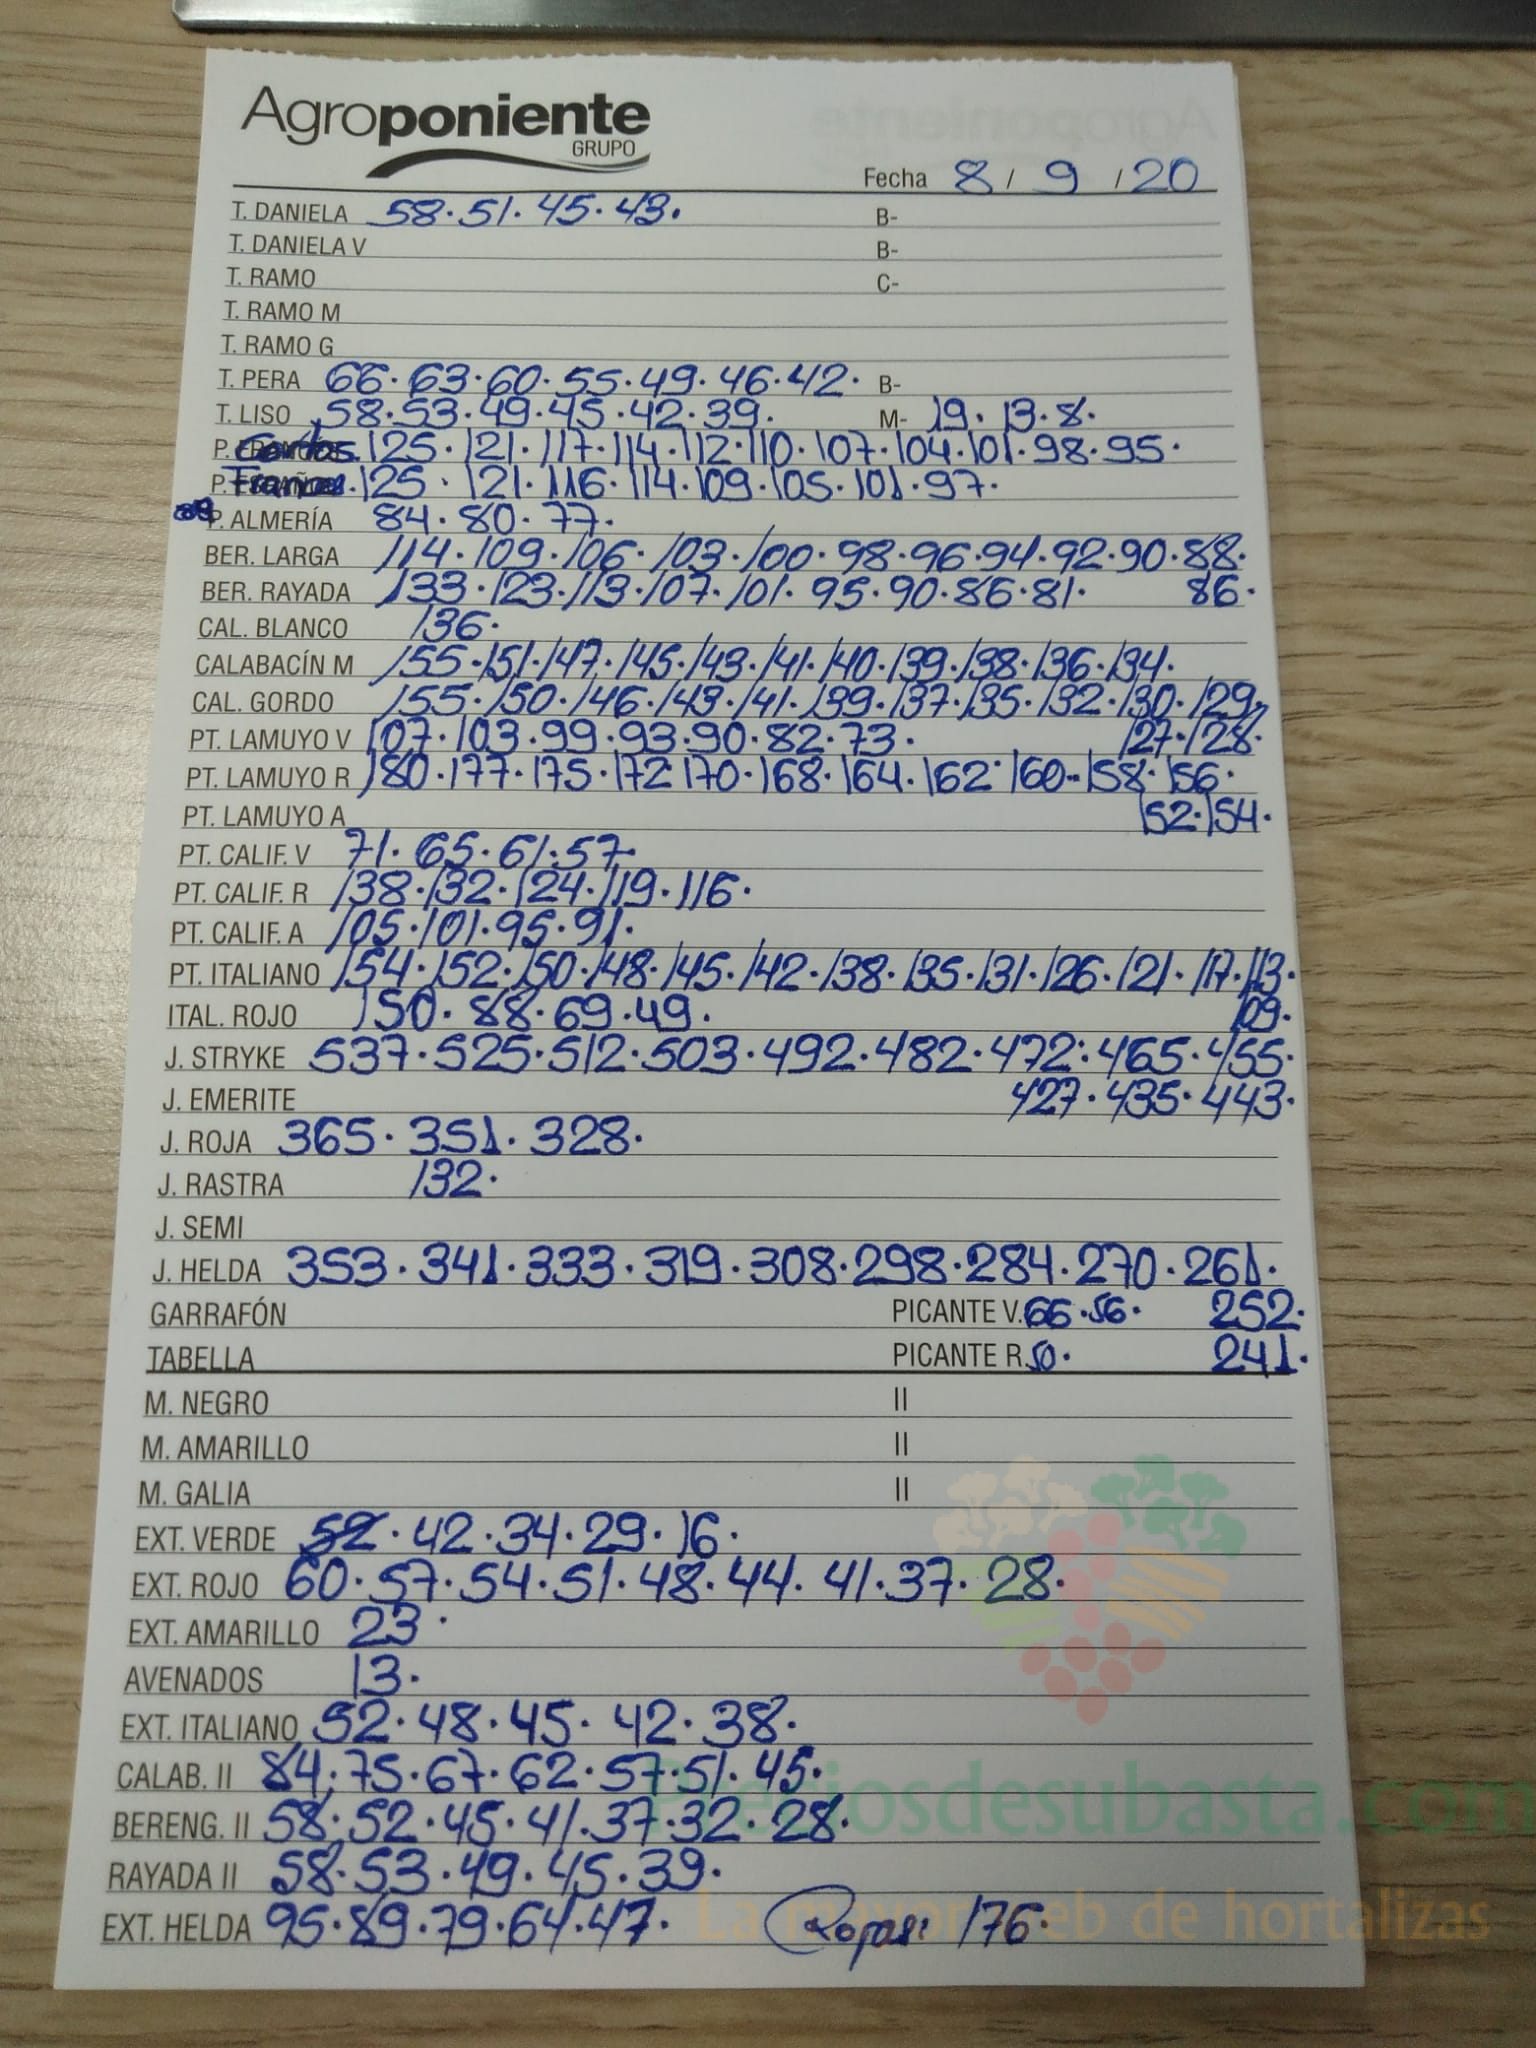 Agroponiente
GRUPO
Fecha 8 / 9 / 20
T. DANIELA 58.51.45.43. B-
T. DANIELA V B-
T. RAMO C-
T. RAMO M
T. RAMO G
T. PERA 66.63.60.55.49.46.42. B-
T. LISO 58.53.49.45.42.39. M- 19.13.8.
Cortos. 125.121.117.114.112.110.107.104.101.98.95.
Frances. 125.121.116.114.109.105.101.97.
P. ALMERÍA 84.80.77.
BER. LARGA 114.109.106.103.100.98.96.94.92.90.88.
BER. RAYADA 133.123.113.107.101.95.90.86.81. 86.
CAL. BLANCO 136.
CALABACÍN M 155.151.147.145.143.141.140.139.138.136.134.
CAL. GORDO 155.150.146.143.141.139.137.135.132.130.129,
PT. LAMUYO V 107.103.99.93.90.82.73. 127.128.
PT. LAMUYO R 180.177.175.172.170.168.164.162.160.158.156.
PT. LAMUYO A 152.154.
PT. CALIF. V 71.65.61.57.
PT. CALIF. R 138.132.124.119.116.
PT. CALIF. A 105.101.95.91.
PT. ITALIANO 154.152.150.148.145.142.138.135.131.126.121.117.113.
ITAL. ROJO 150.88.69.49. 109.
J. STRYKE 537.525.512.503.492.482.472.465.455.
J. EMERITE 427.435.443.
J. ROJA 365.351.328.
J. RASTRA 132.
J. SEMI
J. HELDA 353.341.333.319.308.298.284.270.261.
GARRAFÓN PICANTE V. 66.56. 252.
TABELLA PICANTE R. 50. 241.
M. NEGRO II
M. AMARILLO II
M. GALIA II
EXT. VERDE 52.42.34.29.16.
EXT. ROJO 60.57.54.51.48.44.41.37.28.
EXT. AMARILLO 23.
AVENADOS 13.
EXT. ITALIANO 52.48.45.42.38.
CALAB. II 84.75.67.62.57.51.45.
Preciosdesubasta.com
BERENG. II 58.52.45.41.37.32.28.
RAYADA II 58.53.49.45.39.
EXT. HELDA 95.89.79.64.47. Rojas: 176.
La mayor web de hortalizas